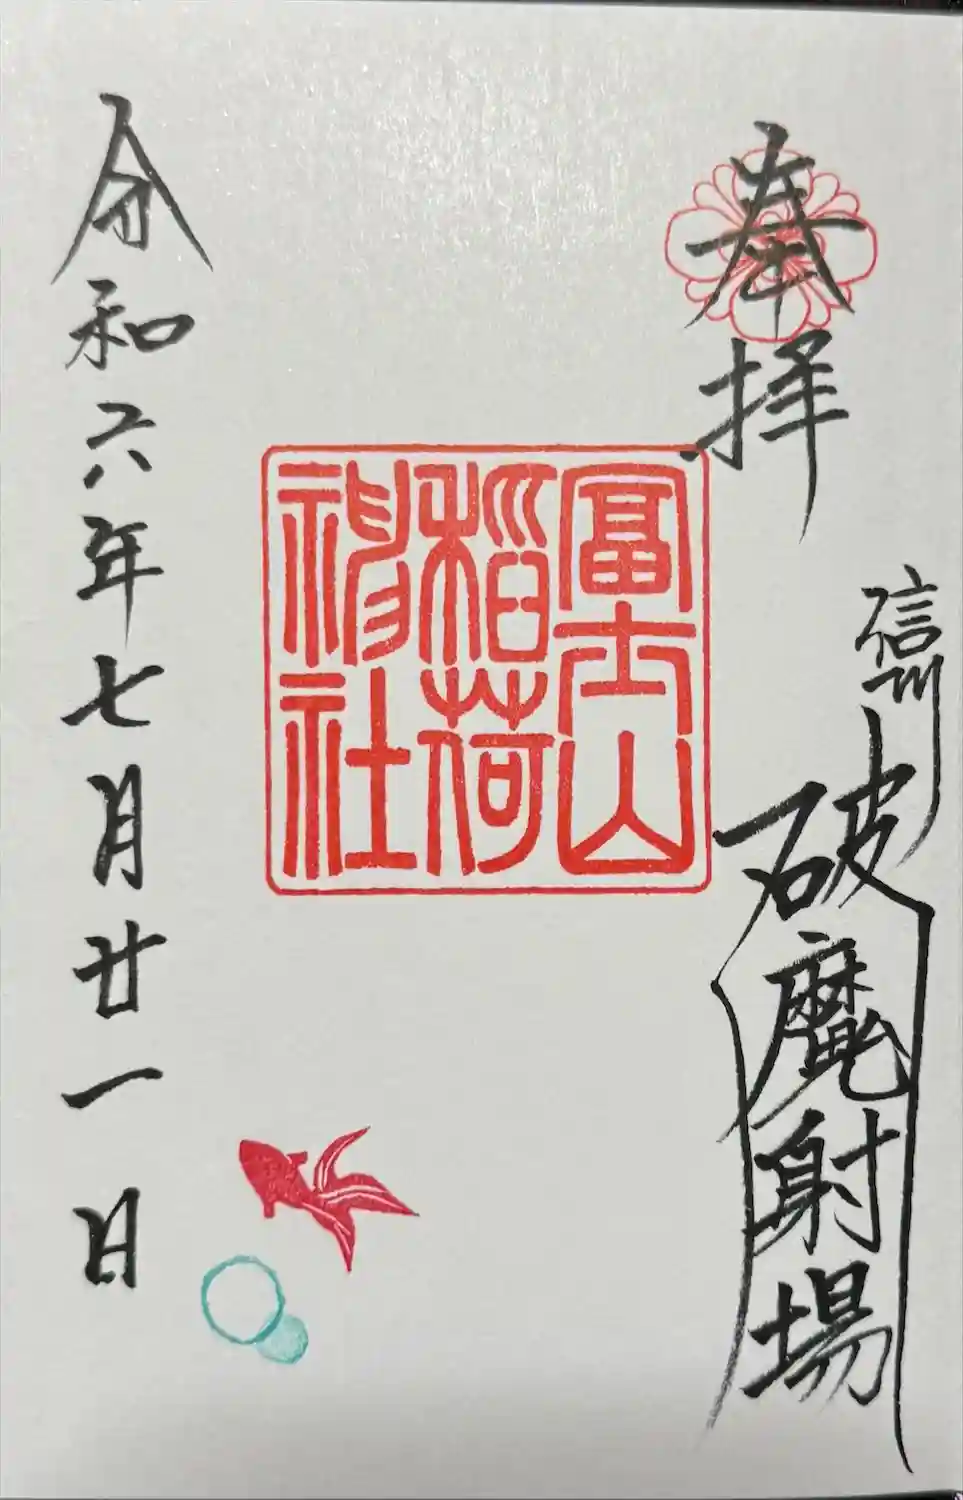 奉拝
信州
破魔射場
冨士山
稲荷
神社
令和六年七月廿一日